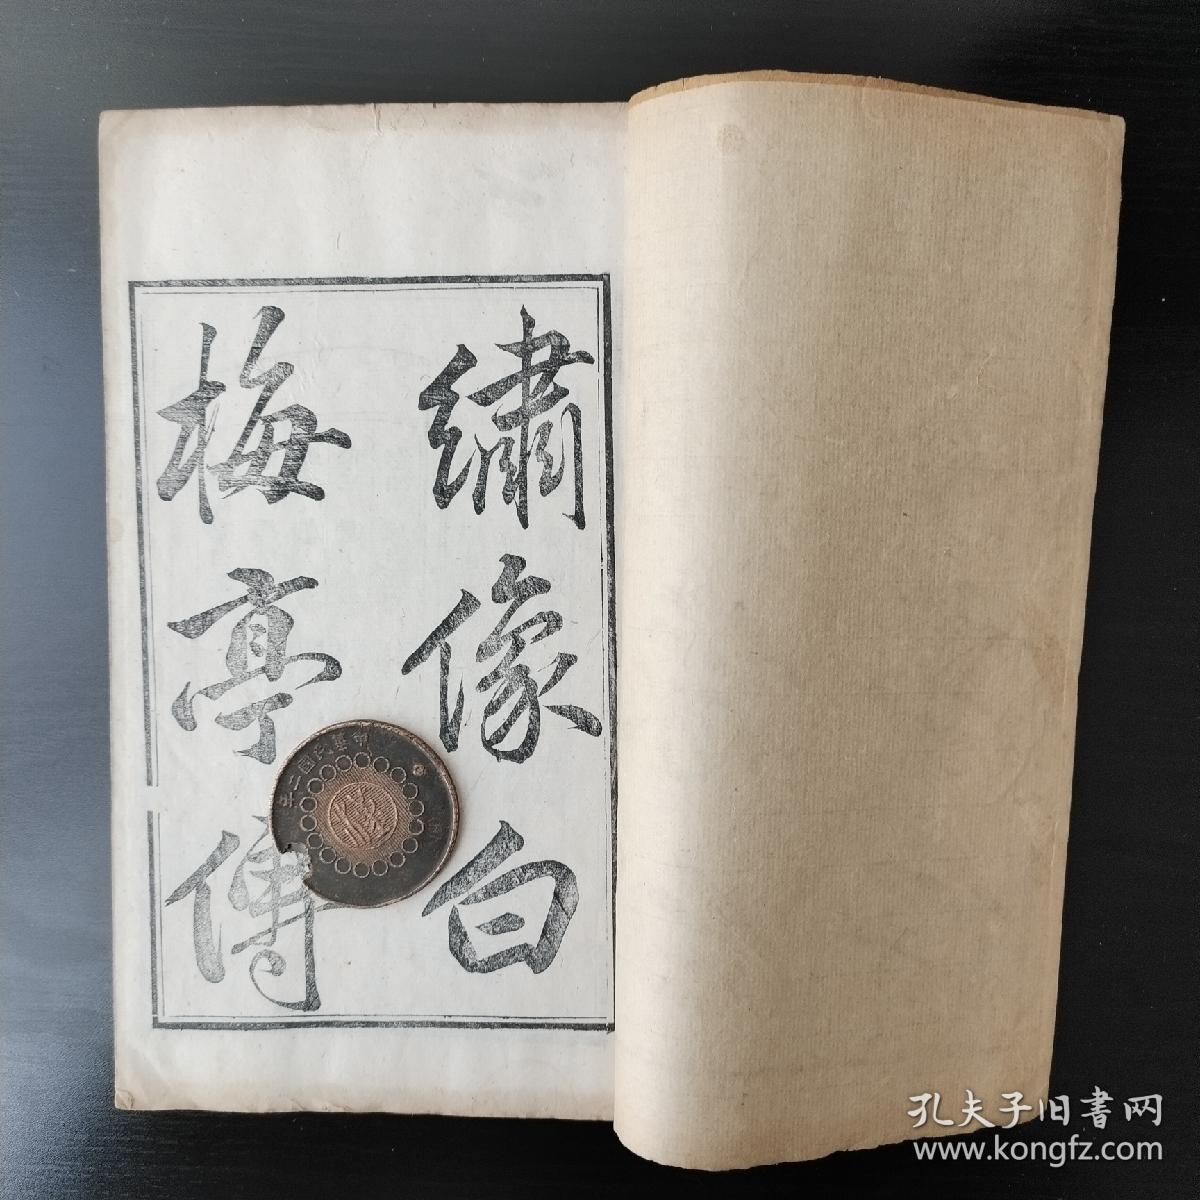 繡像白
梅亭傳
中華民國二年
孔夫子旧书网
www.kongfz.com